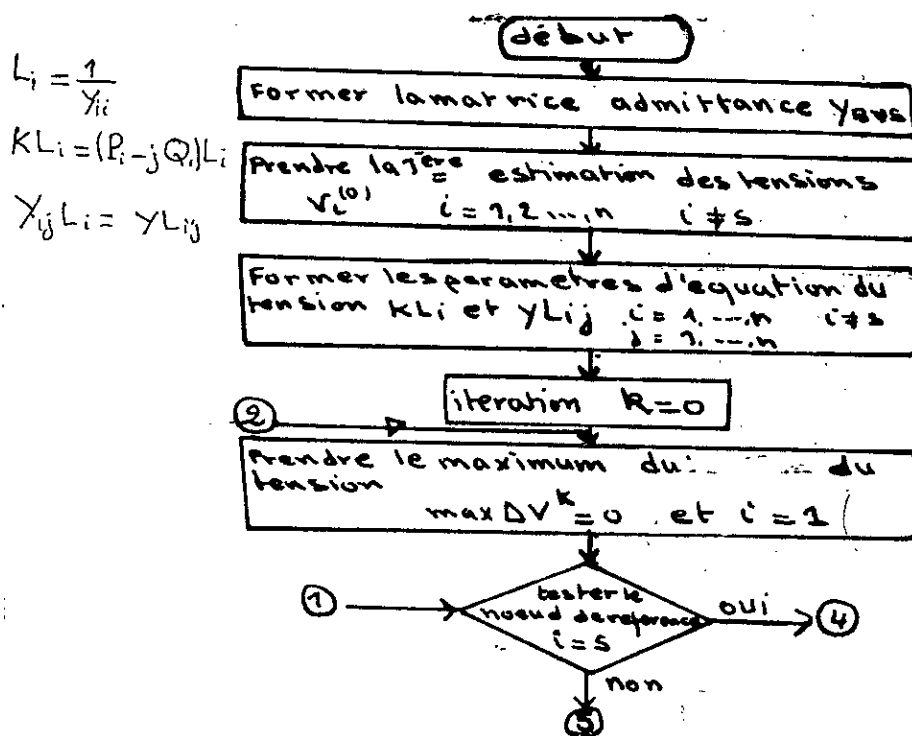 début
L_i = 1/Y_ii
KL_i = (P_i - jQ_i)L_i
Y_ij L_i = YL_ij
Former la matrice admittance Y_BUS
Prendre la 1ère estimation des tensions
V_i^(0) i = 1, 2 ..., n i ≠ s
Former les parametres d'equation du
tension KLi et YLij i = 1, ..., n i ≠ s
j = 1, ..., n
iteration k=0
2
Prendre le maximum du du
tension
max ΔV^k = 0 et i = 1
1
tester le
noeud de reference
i = s
oui
4
non